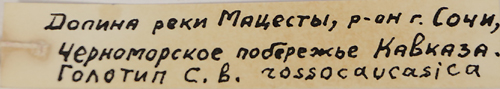 Долина реки Мацесты, р-он г. Сочи,
Черноморское побережье Кавказа.
Голотип C. в. rossocaucasica